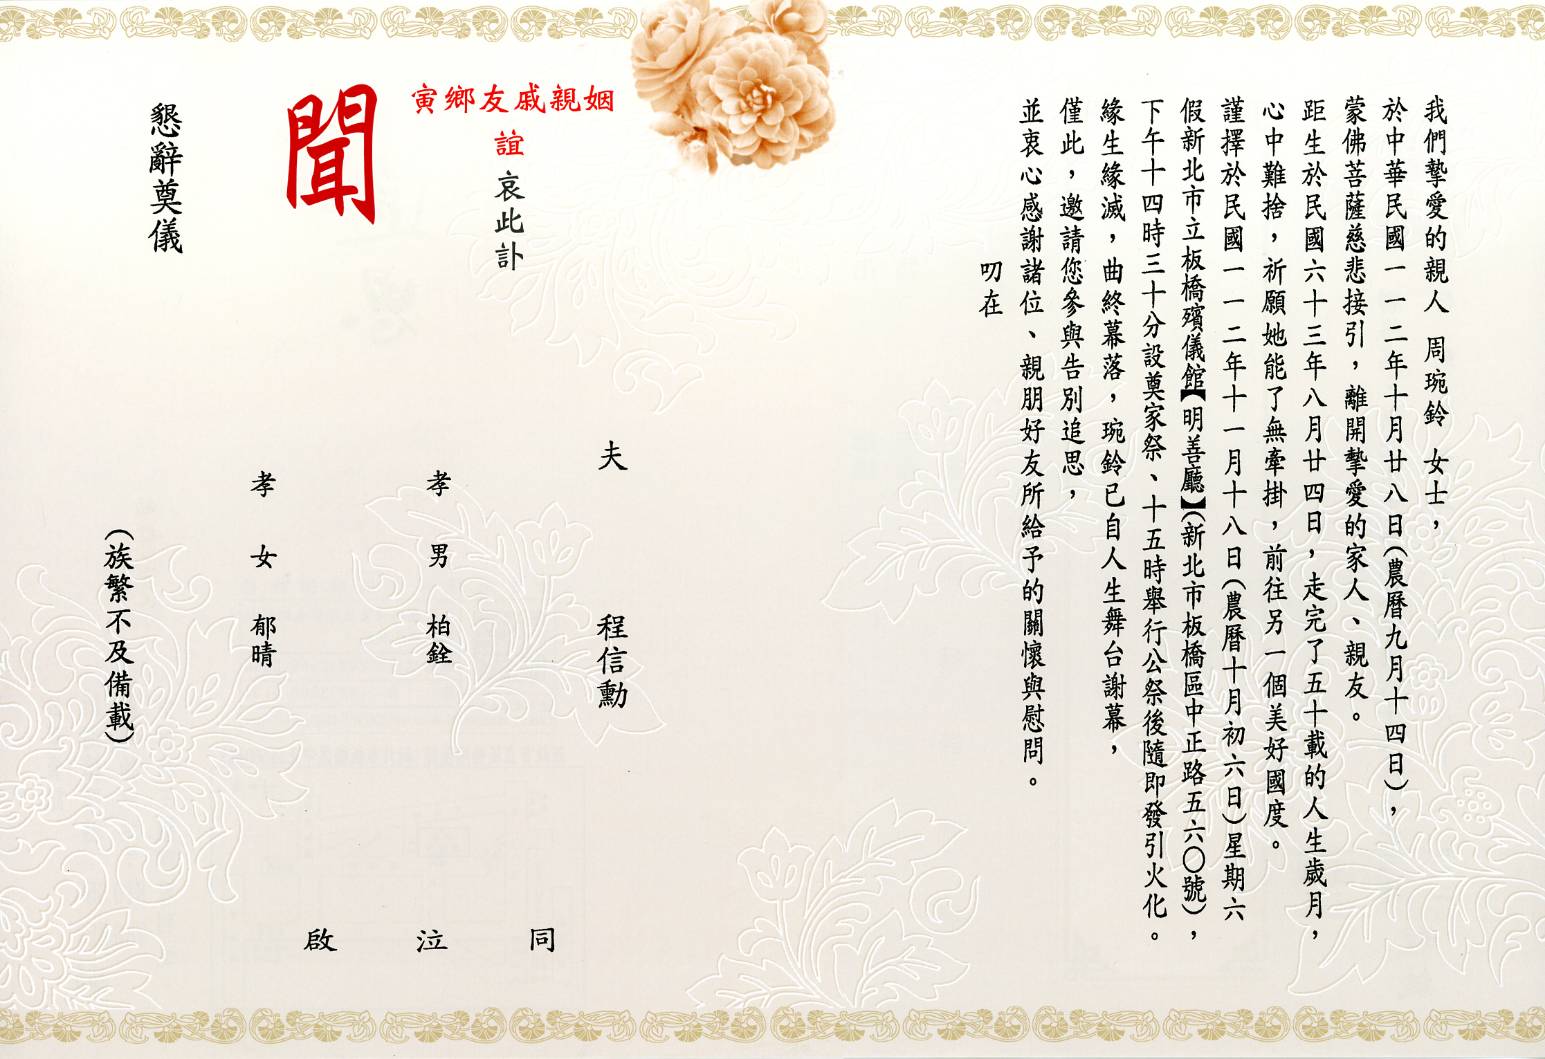 我們摯愛的親人 周琬鈴 女士，
於中華民國一一二年十月廿八日(農曆九月十四日)，
蒙佛菩薩慈悲接引，離開摯愛的家人、親友。
距生於民國六十三年八月廿四日，走完了五十載的人生歲月，
心中難捨，祈願她能了無牽掛，前往另一個美好國度。
謹擇於民國一一二年十一月十八日(農曆十月初六日)星期六
假新北市立板橋殯儀館【明善廳】(新北市板橋區中正路五六〇號)，
下午十四時三十分設奠家祭、十五時舉行公祭後隨即發引火化。
緣生緣滅，曲終幕落，琬鈴已自人生舞台謝幕，
僅此，邀請您參與告別追思，
並衷心感謝諸位、親朋好友所給予的關懷與慰問。
叨在
姻親戚友鄉寅
誼
哀此訃
聞
懇辭奠儀
夫 程信勳
孝男 柏銓
孝女 郁晴
同泣啟
(族繁不及備載)